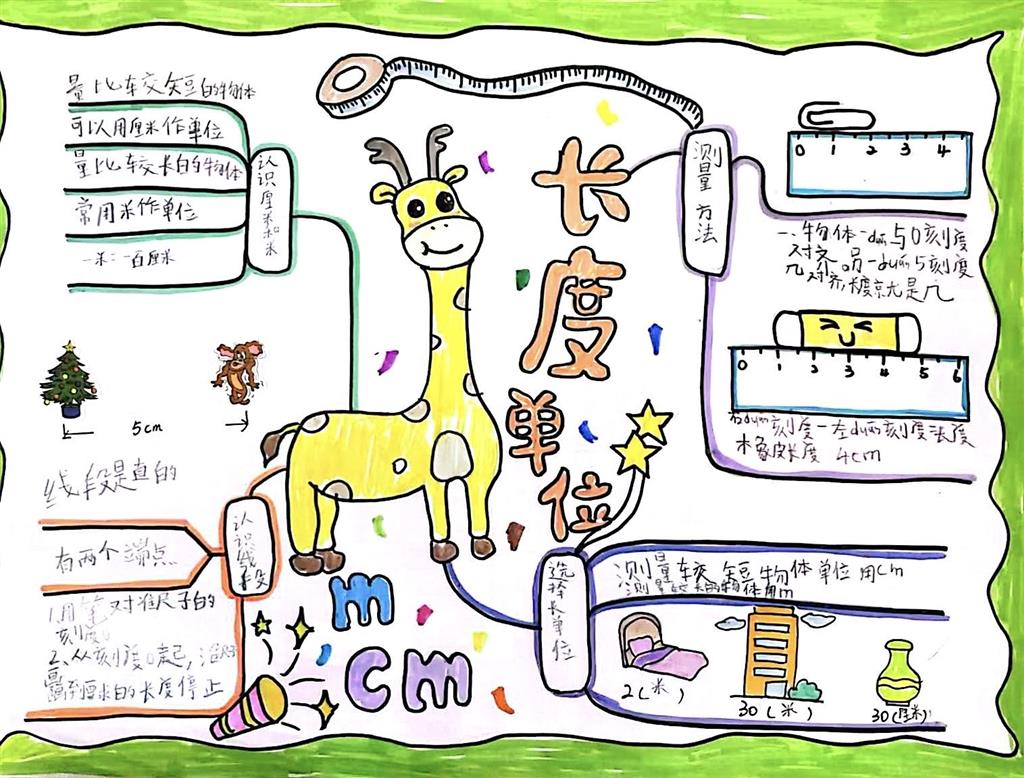 量比较短的物体
可以用厘米作单位
量比较长的物体
常用米作单位
一米=一百厘米
认识厘米和米
5cm
线段是直的
有两个端点
认识线段
1.用笔对准尺子的
刻度0
2、从刻度0起,沿
厘米的长度停止
长度单位
m
cm
测量方法
0 1 2 3 4
一、物体一duan与0刻度
对齐,另一duan与刻度
几对齐,长度就是几
0 1 2 3 4 5 6
右duan刻度-左duan刻度
橡皮长度 4cm
选择长单位
测量较短物体单位用cm
测量较长的物体用m
2(米)
30(米)
30(厘米)